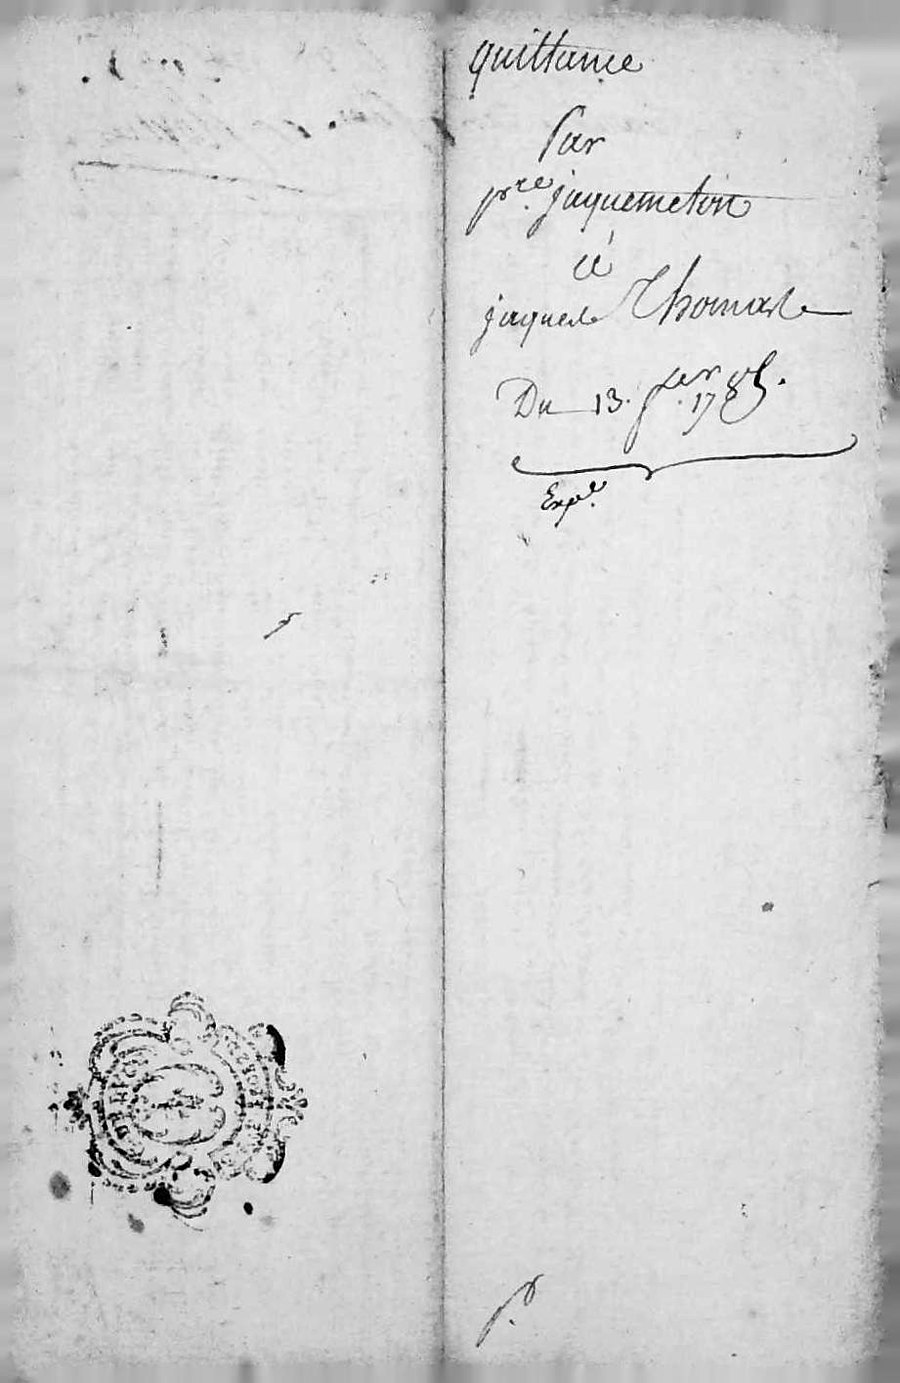 quittance
par
pre. jaquemeton
à
jaques Thomas
Du 13. 1785.
Expe.